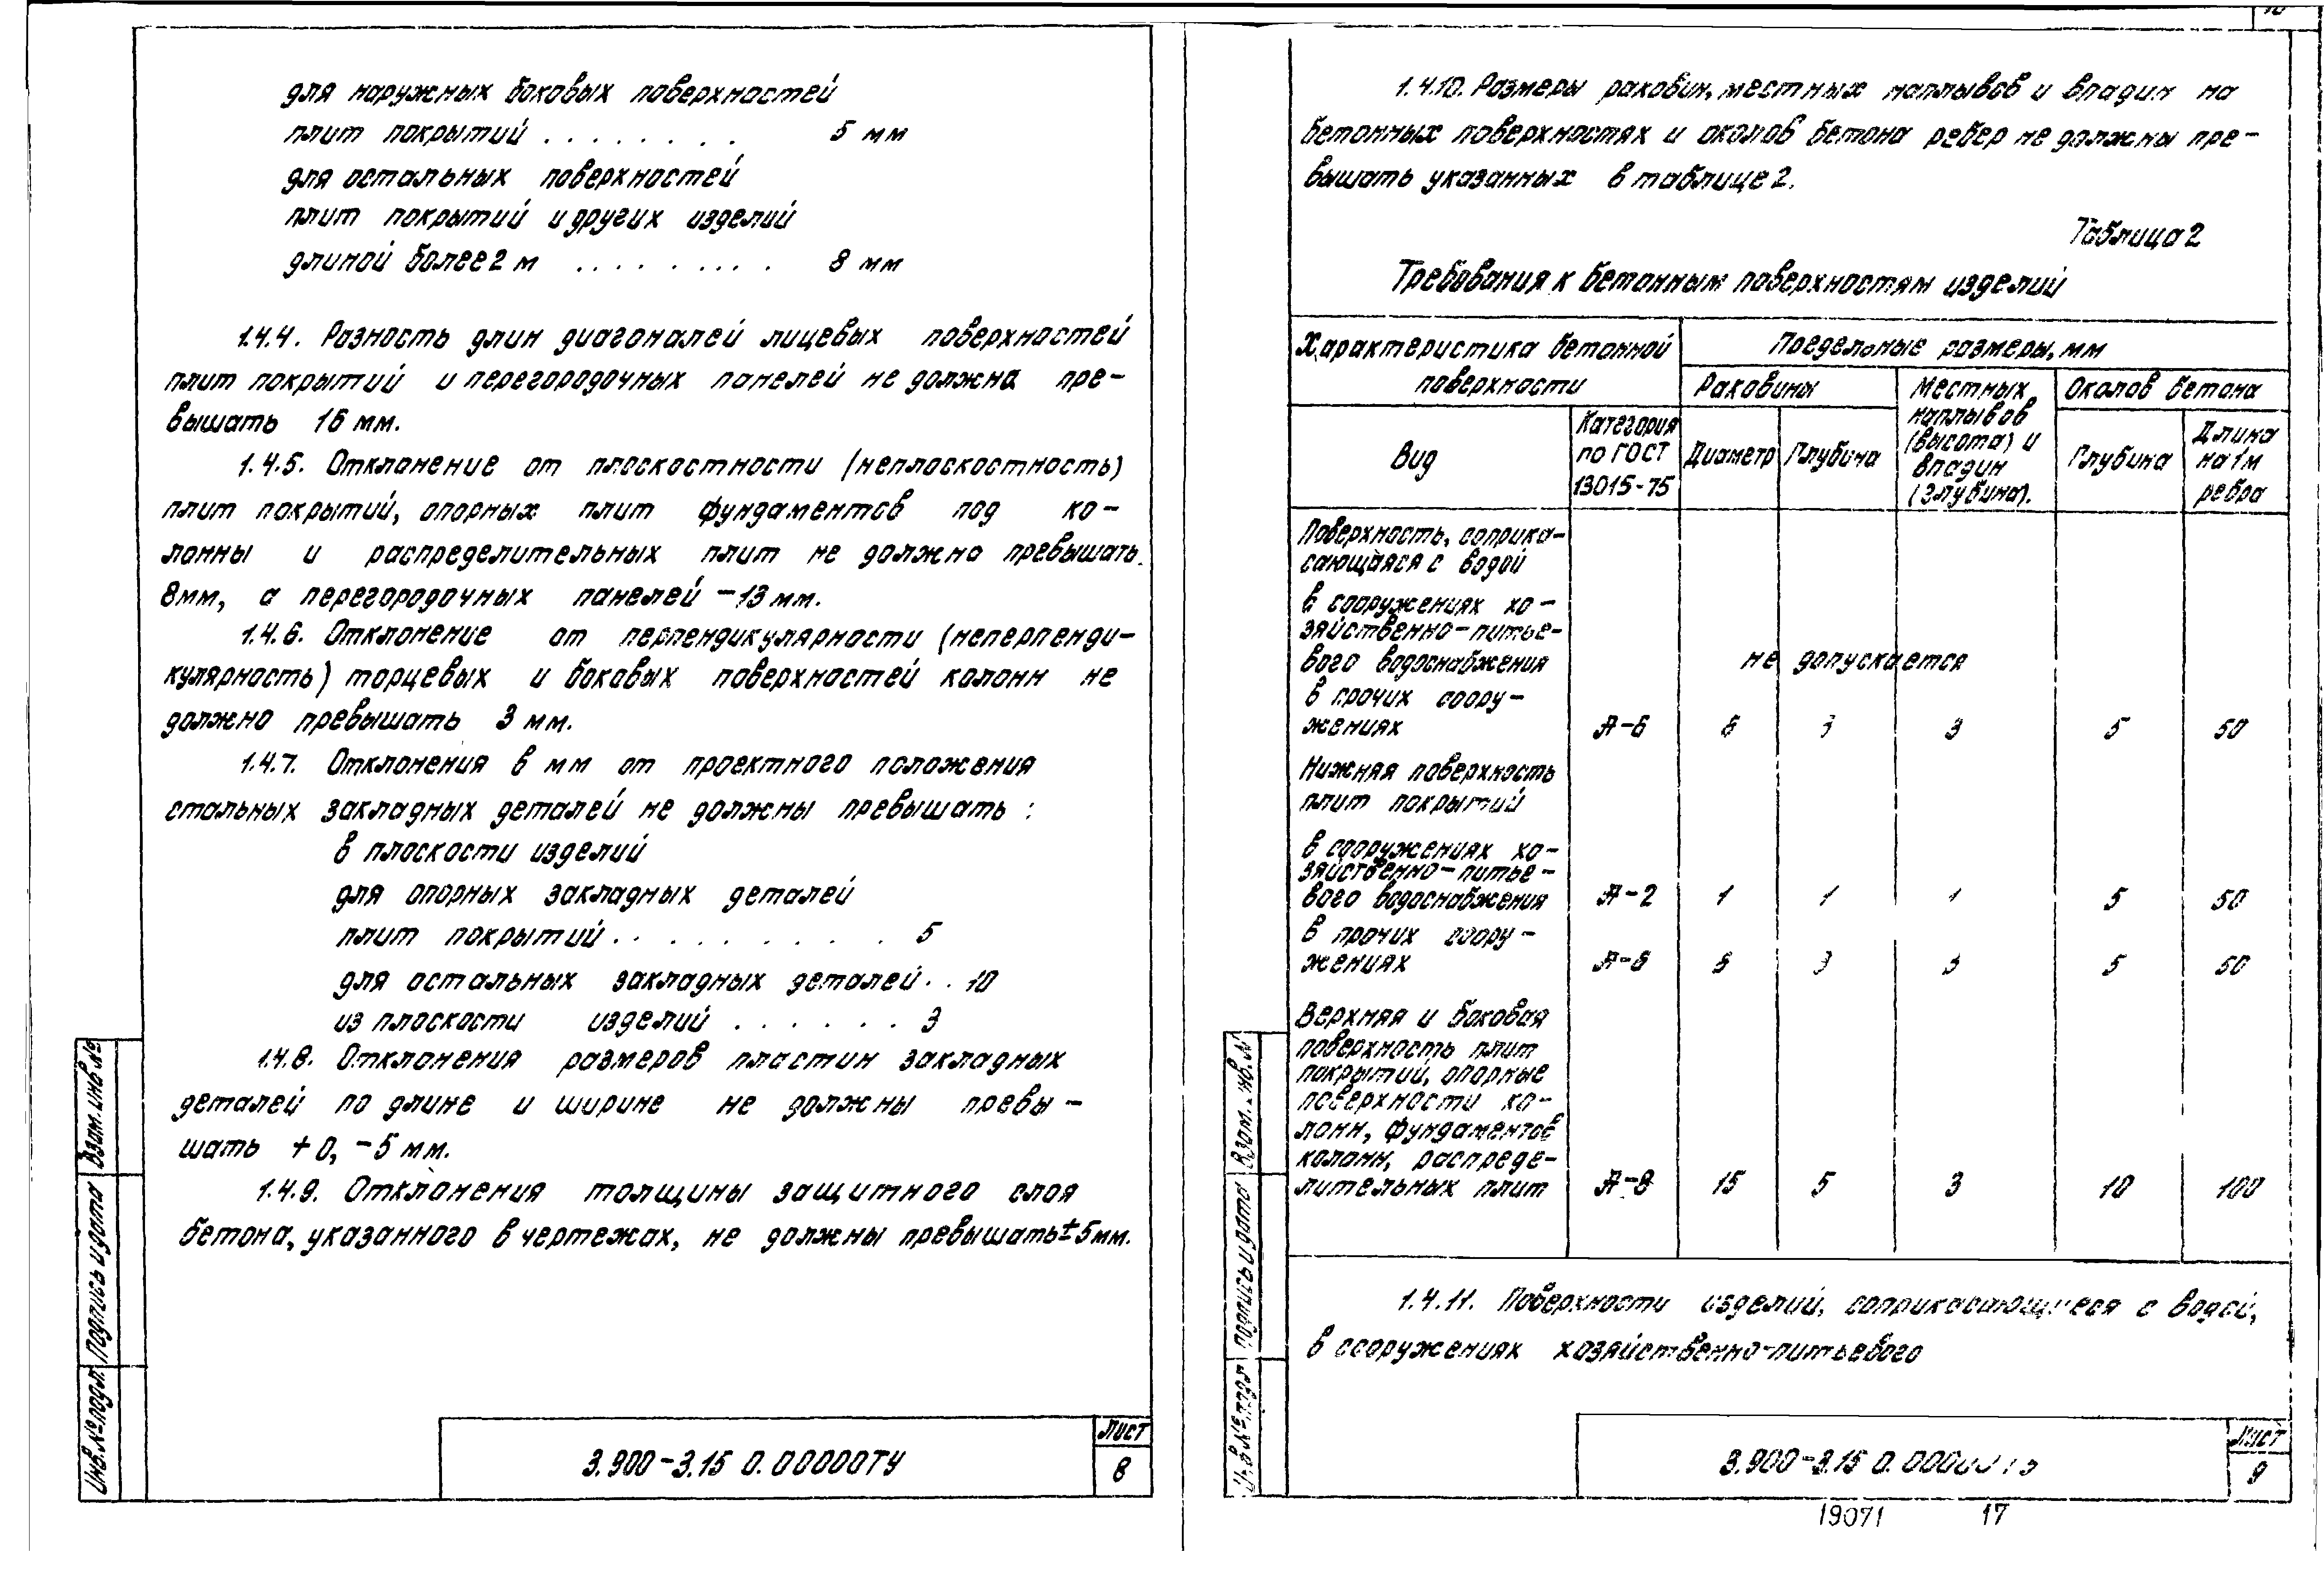 для наружных боковых поверхностей
плит покрытий . . . . . . . . 5 мм
для остальных поверхностей
плит покрытий и других изделий
длиной более 2 м . . . . . . . . . 8 мм
1.4.4. Разность длин диагоналей лицевых поверхностей
плит покрытий и перегородочных панелей не должна пре-
вышать 16 мм.
1.4.5. Отклонение от плоскостности (неплоскостность)
плит покрытий, опорных плит фундаментов под ко-
лонны и распределительных плит не должно превышать
8мм, а перегородочных панелей - 13 мм.
1.4.6. Отклонение от перпендикулярности (неперпенди-
кулярность) торцевых и боковых поверхностей колонн не
должно превышать 3 мм.
1.4.7. Отклонения в мм от проектного положения
стальных закладных деталей не должны превышать :
в плоскости изделий
для опорных закладных деталей
плит покрытий . . . . . . . . . . 5
для остальных закладных деталей . . 10
из плоскости изделий . . . . . . . 3
1.4.8. Отклонения размеров пластин закладных
деталей по длине и ширине не должны превы-
шать +0, -5 мм.
1.4.9. Отклонения толщины защитного слоя
бетона, указанного в чертежах, не должны превышать ±5мм.
Взам. инв №
Подпись и дата
Инв. № подл.
3.900-3.15 0.00000ТУ
Лист
8
1.4.10. Размеры раковин, местных наплывов и впадин на
бетонных поверхностях и околов бетона ребер не должны пре-
вышать указанных в таблице 2.
Таблица 2
Требования к бетонным поверхностям изделий
Характеристика бетонной поверхности
Предельные размеры, мм
Раковины
Местных наплывов (высота) и впадин (глубина).
Околов бетона
Вид
Категория по ГОСТ 13015-75
Диаметр
Глубина
Глубина
Длина на 1м ребра
Поверхность, соприка-
сающаяся с водой
в сооружениях хо-
зяйственно-питье-
вого водоснабжения не допускается
в прочих соору-
жениях А-6 3 3 5 50
Нижняя поверхность
плит покрытий
в сооружениях хо-
зяйственно-питье-
вого водоснабжения А-2 1 1 1 5 50
в прочих соору-
жениях 3 5 50
Верхняя и боковая
поверхность плит
покрытий, опорные
поверхности ко-
лонн, фундаментов
колонн, распреде-
лительных плит А-8 15 5 3 10 100
1.4.11. Поверхности изделий, соприкасающиеся с водой,
в сооружениях хозяйственно-питьевого
Взам. инв. №
Подпись и дата
Инв № подл
3.900-3.15 0.000
Лист
9
19071 17